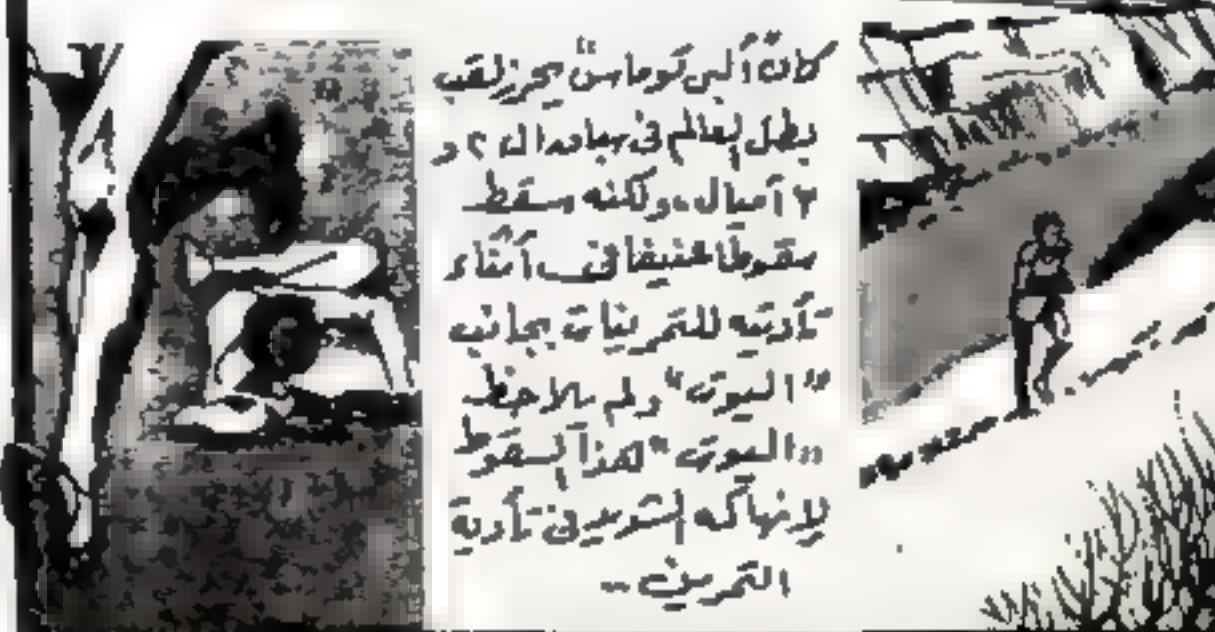 كان "ألبى توماس" يحرز لقب
بطل العالم فى سباق ال ٢ و
٣ أميال، ولكنه سقط
سقوطا عنيفا فى أثناء
تأديته للتمرينات بجانب
"اليوت" ولم يلاحظ
"اليوت" هذا السقوط
لانهاكه الشديد فى تأدية
التمرين ..